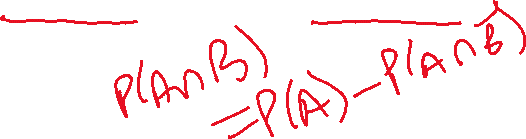 P(A∩B)
=P(A)-P(A∩B')